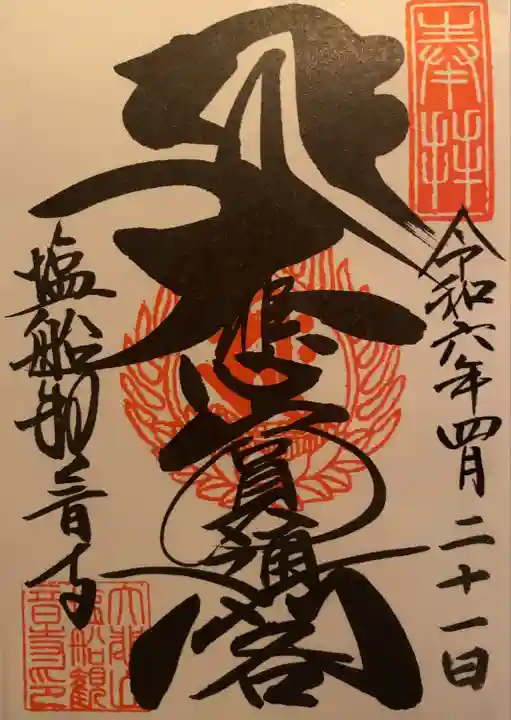 奉拝
令和六年四月二十一日
大悲圓通閣
塩船観音寺
大悲山
塩船観
音寺印